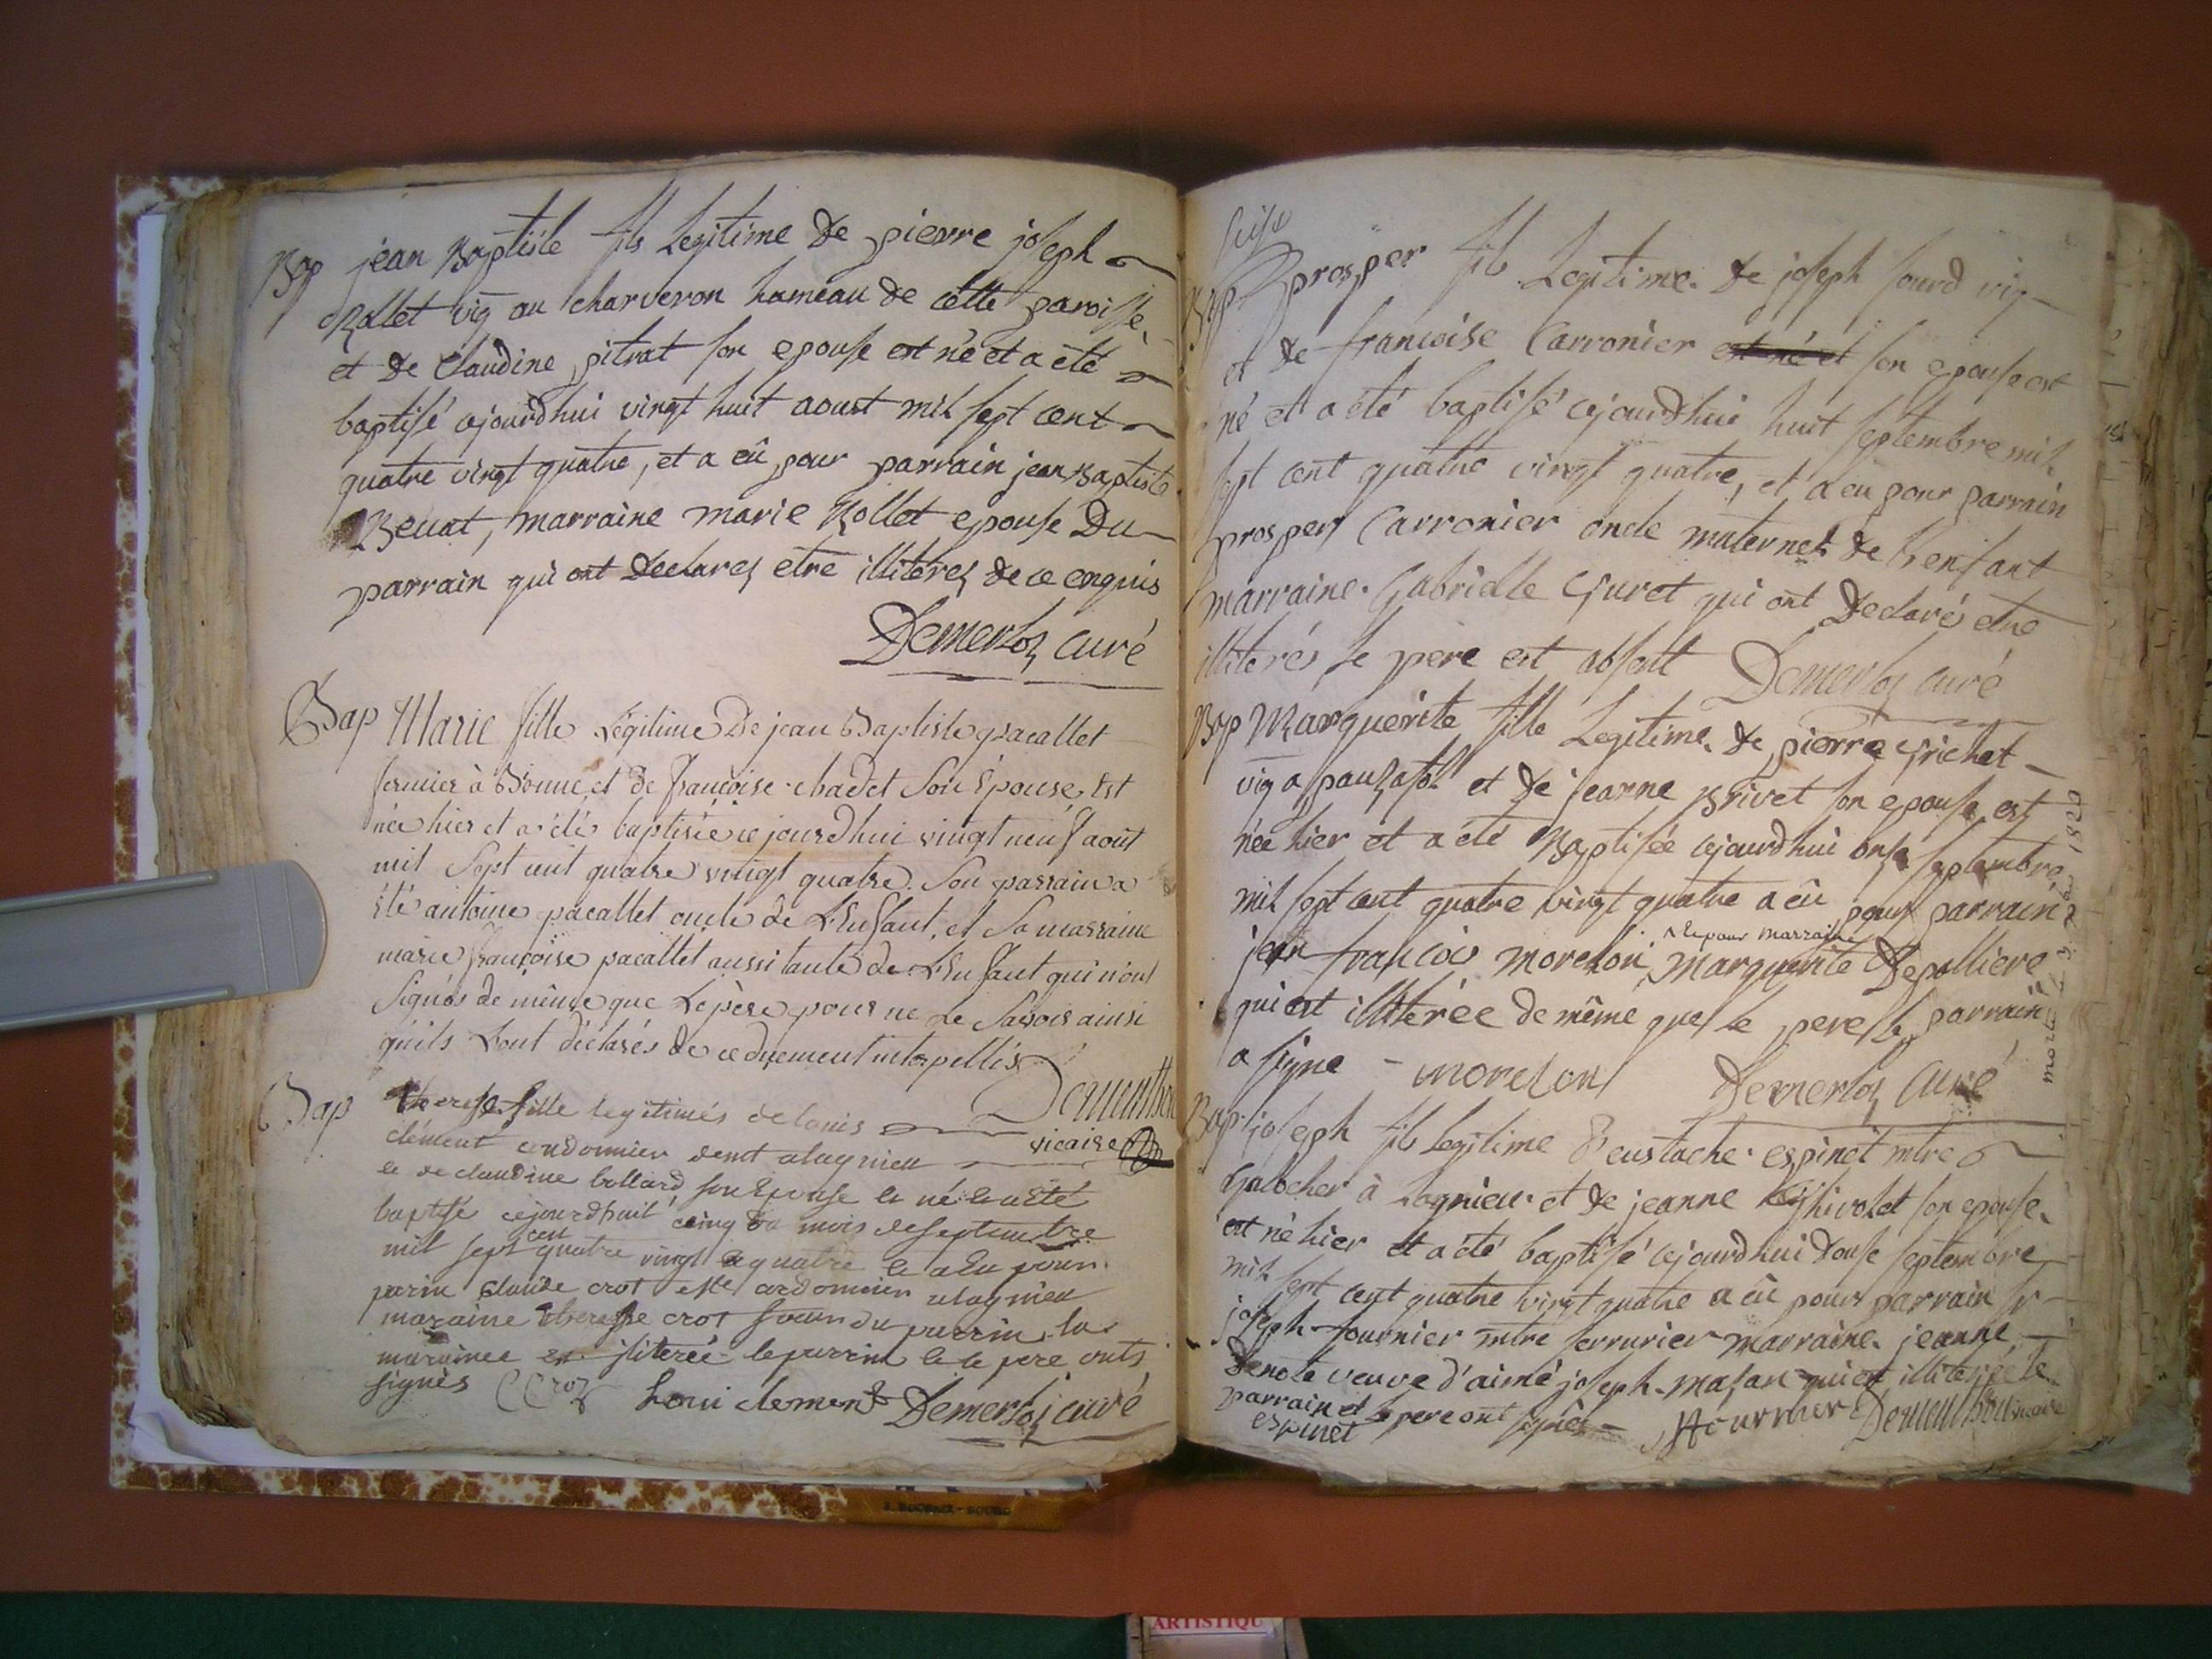 Bap jean Baptiste fils Legitime de pierre joseph
Rollet vig au charveron hameau de cette paroisse
et de Claudine pitrat son epouse est né et a été
baptisé cejourdhui vingt huit aoust mil sept cent
quatre vingt quatre, et a eû pour parrain jean Baptiste
Beuat, marraine marie Rollet epouse Du
parrain qui ont declarez etre illiterez de ce enquis
Demerloz curé
Bap Marie fille Légitime De jean Baptiste pacallet
fermier à Bonne et de françoise chadet Son épouse, Est
née hier et a été baptisée cejourdhui vingt neuf août
mil Sept cent quatre vingt quatre. Son parrain a
été antoine pacallet oncle de L'Enfant, et Sa marraine
marie françoise pacallet aussi tante de L'Enfant qui n'ont
Signés de même que Le père pour ne Le Savoir ainsi
qu'ils L'ont déclarés de ce duement interpellés
Dementhon
vicaire
Bap therese fille legitimés de louis
clément cordonnier alagnieu
le de claudine bollard son Epouse le né le a été
baptisé cejourdhuit cinq du mois de septembre
mil sept cent quatre vingt quatre le a Eu pour
parin claude crot cordonnier alagnieu
maraine therese crot soeur du parrin la
marainee est iliterée le parrin le le pere onts
signès C Croz Loui clement Demerloz curé
suise
Bap prosper fils Legitime de joseph sourd vig
et de francoise Carronier est né et son epouse est
né et a été baptisé cejourdhui huit septembre mil
sept cent quatre vingt quatre, et a eu pour parrain
prosper Carronier oncle maternel de L'enfant
marraine Gabrielle Guret qui ont Declarés etre
illiterés le pere est absent Demerloz curé
Bap Marguerite fille Legitime de pierre Grichet
vig a et de jeanne Brivet son epouse est
née hier et a été Baptisée cejourdhui onse septembre
mil sept cent quatre vingt quatre a eû pour parrain
jean françois morelon, & pour marraine Marguerite Depolliere
qui est illiterée de même que le pere le parrain
a signe - morelon Demerloz Curé
morte 1820
Bap joseph fils legitime d'eustache espinet mtre
Galocher à Lagnieu et de jeanne son epouse
est né hier et a été baptisé cejourdhui douse septembre
mil sept cent quatre vingt quatre a eû pour parrain sr
joseph fournier mtre serrurier marraine jeanne
Denote veuve d'aimé joseph mazan qui est illiterée le
parrain et le pere ont signés - J fournier Dementhon vicaire
espinet
ARTISTIQU